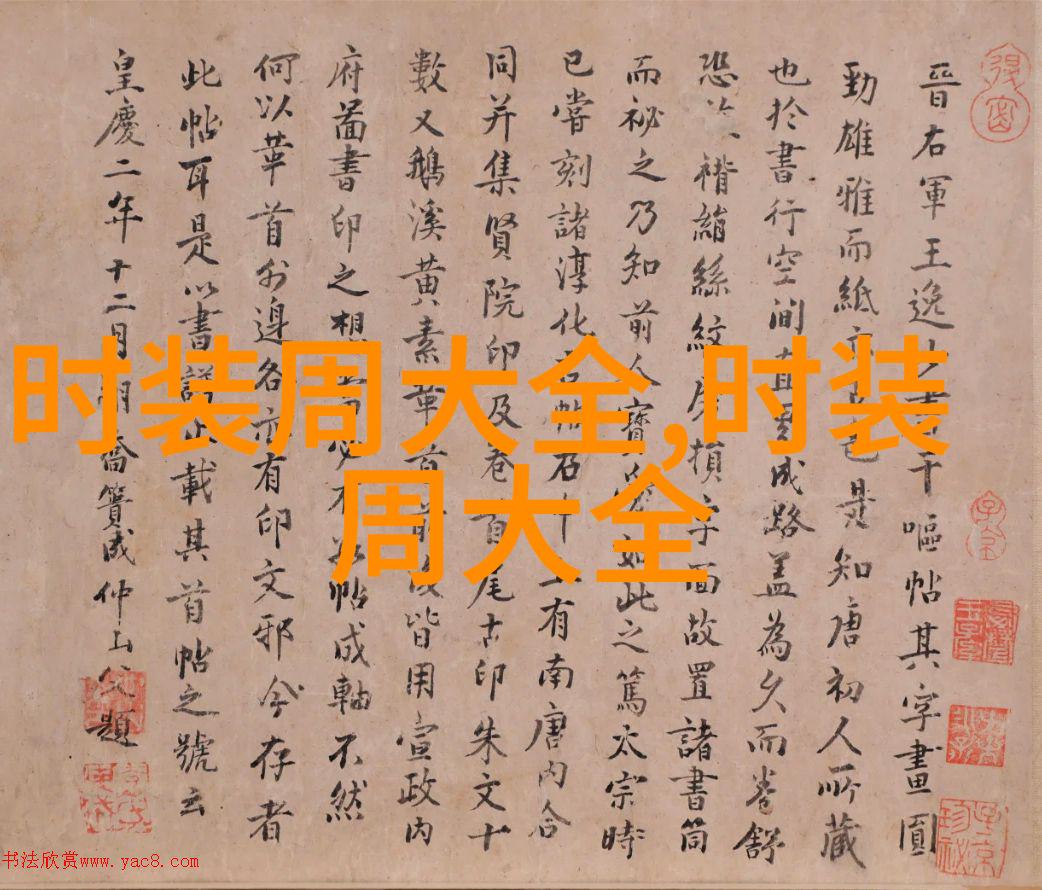 晉右軍王逸干嘔帖其字畫圓
勁雄雅而紙亦已是知唐初人所藏
也於書行空間直成路蓋為久而卷舒
恐褙縚絲紋損字面故置諸書筒
而祕之乃知前人寶如此之篤太宗時
已嘗刻諸淳化帖石十有南唐内合
同并集賢院印及卷首尾古印朱文十
數又鵝溪黃素首皆用宣政内
府啚書印之想帖成軸不然
何以華首外邊各亦有印文邪今存者
此帖耳是以書載其首帖之號云
皇慶二年十二月朔喬簣成仲山父題
时装周大全,时装
周大全
书法欣赏www.yac8.com